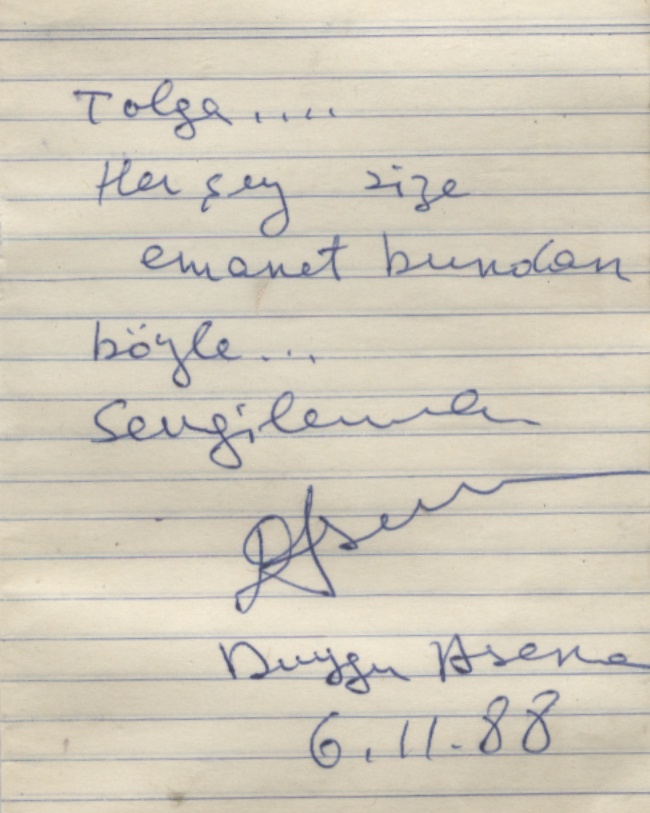 Tolga....
Her şey size
emanet bundan
böyle...
Sevgilerimle
Duygu Asena
6.11.88